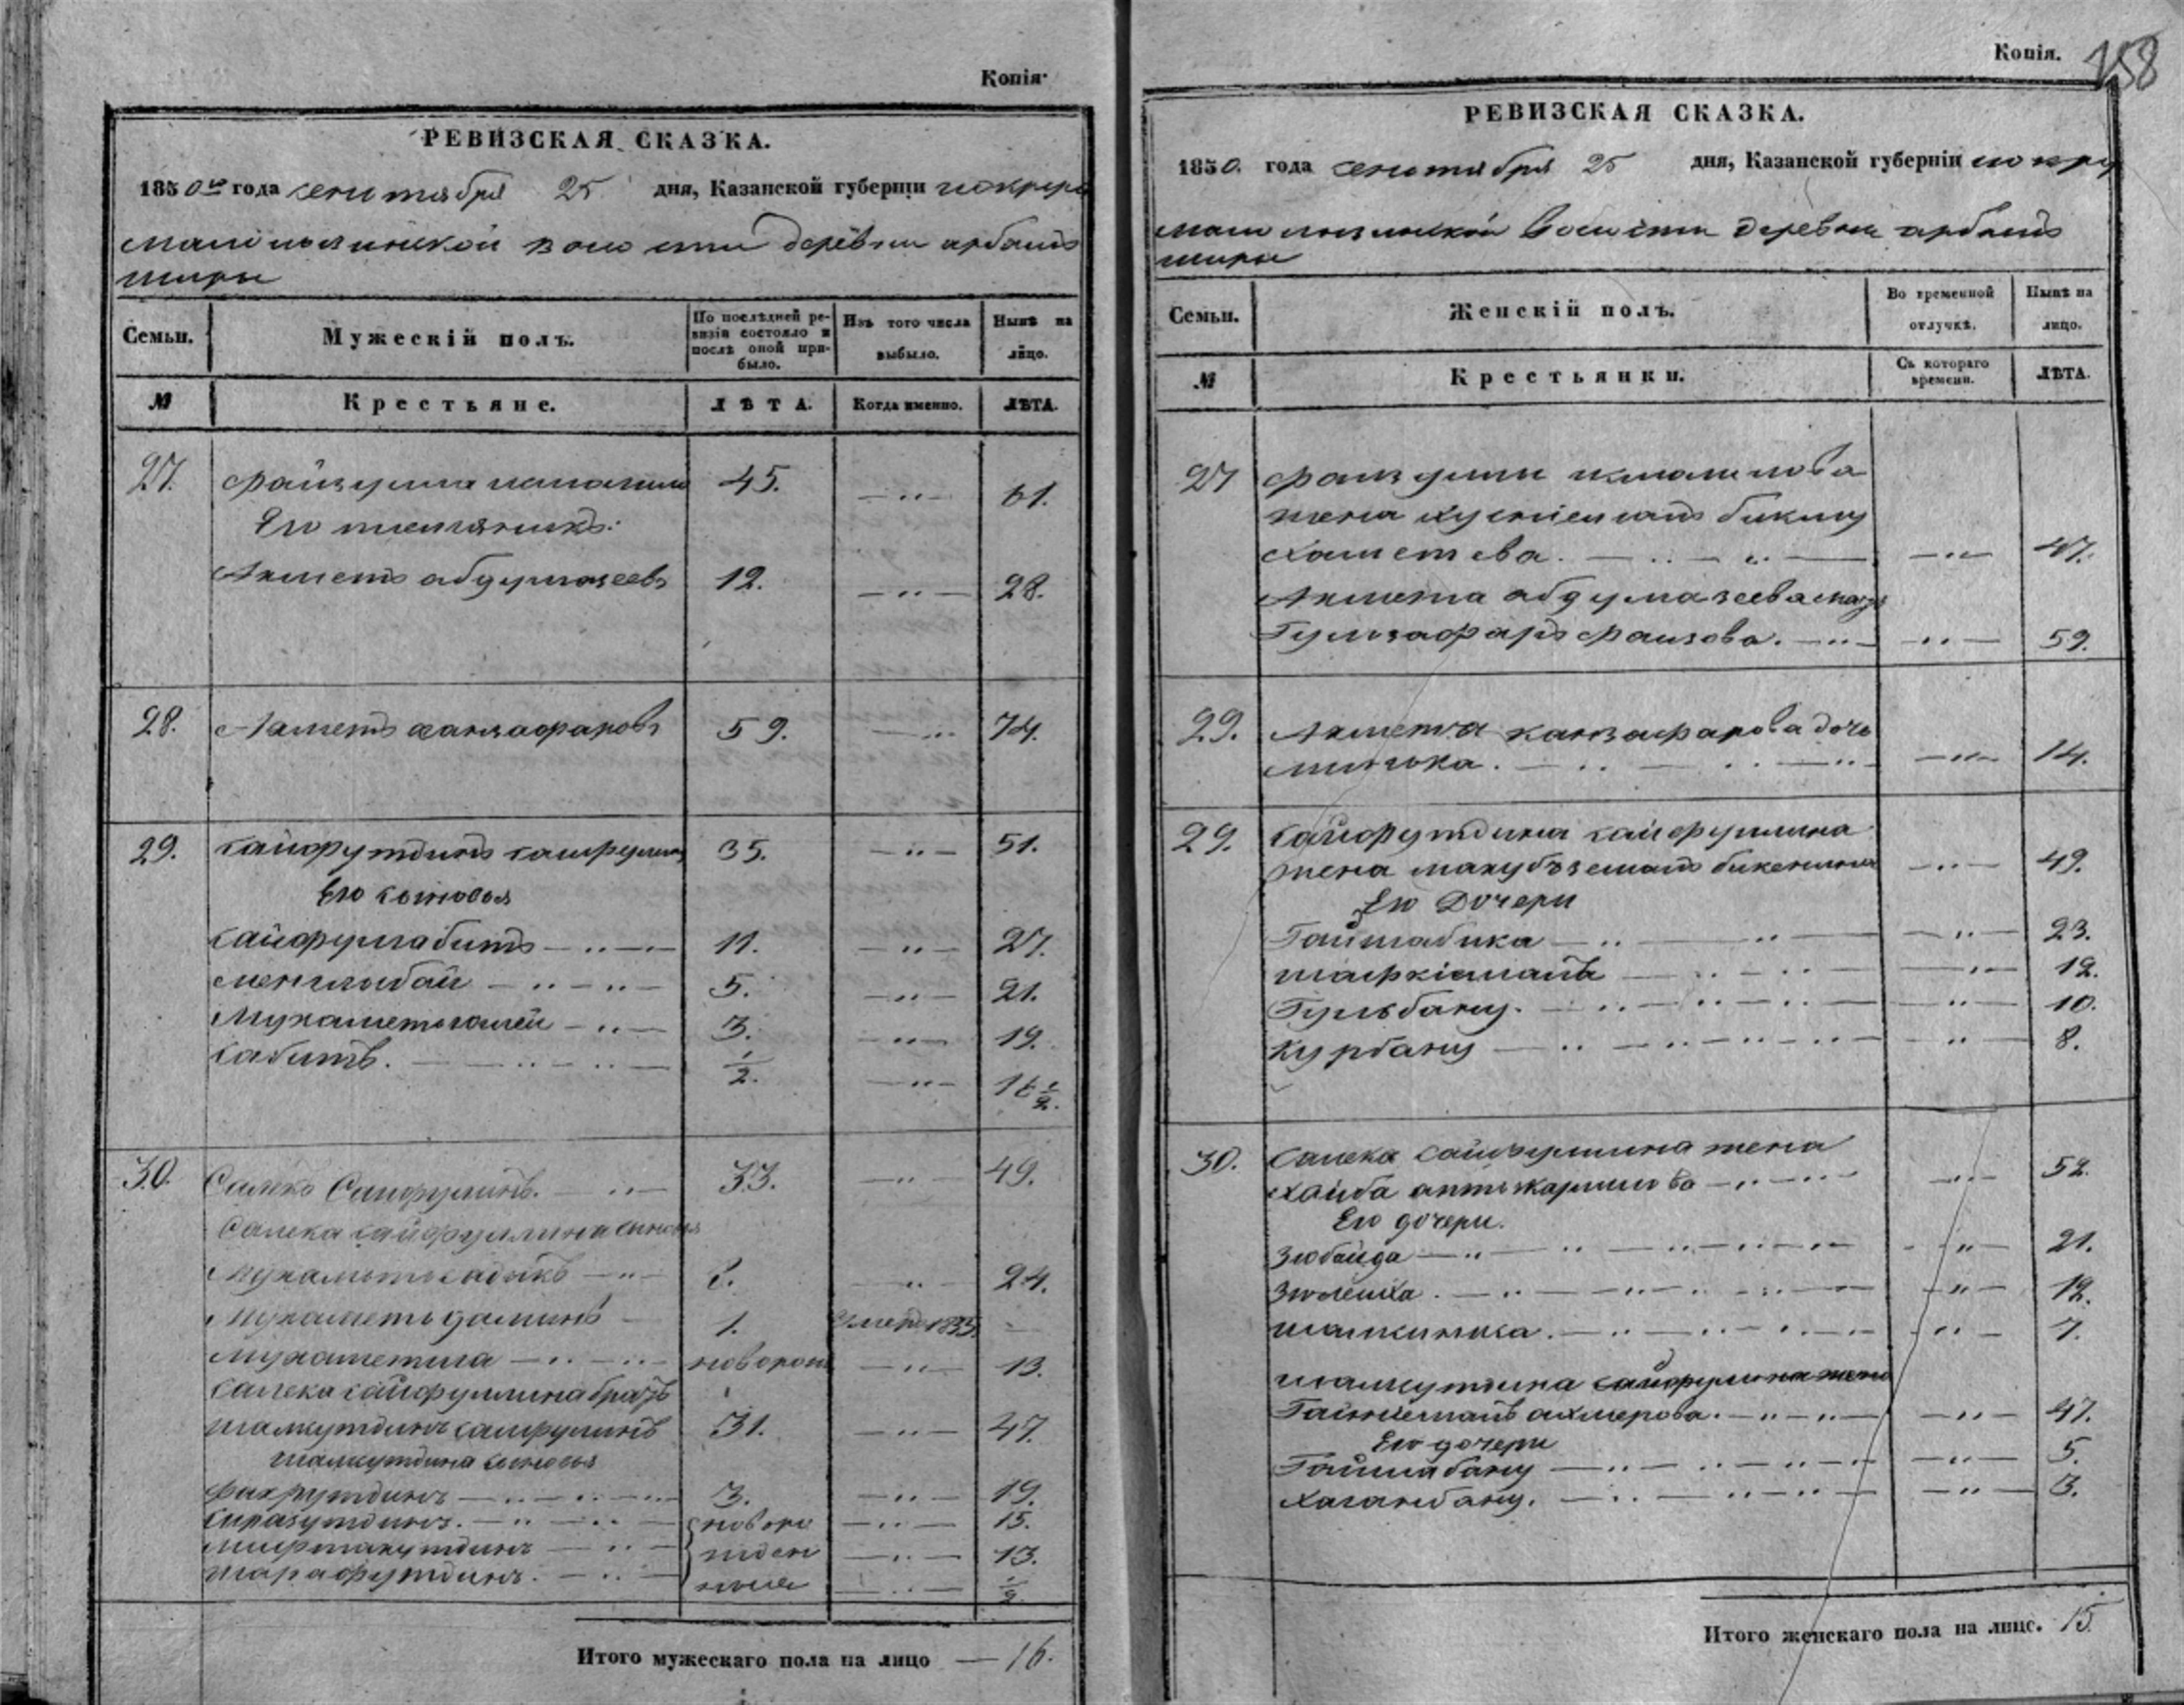 Копія.
РЕВИЗСКАЯ СКАЗКА.
1850го года сентября 25 дня, Казанской губерніи
волости деревни арбашъ
ширы
Семьи.
Мужескій полъ.
По послѣдней ре-
визіи состояло и
послѣ оной при-
было.
Изъ того числа
выбыло.
Нынѣ на
лицо.
№
Крестьяне.
ЛѢТА.
Когда именно.
ЛѢТА.
27. Файзулла 45. — „ — 61.
Его племянникъ:
Ахметъ абдулвазеевъ 12. — „ — 28.
28. Ахметъ ханзафаровъ 59. — „ 74.
29. Сайфутдинъ сайфуллинъ 35. — „ — 51.
Его сыновья
Сайфулгабитъ — „ — „ 11. — „ — 27.
менглыбай — „ — „ — 5. — „ — 21.
Мухаметьгалей — „ — 3. — „ — 19.
Сабитъ. — „ — „ — 1/2. — „ — 16 1/2.
30. Салекъ Сайфулинъ. — „ — 33. — „ — 49.
Салека сайфуллина сыновья
Мухаметьсадыкъ — „ — 8. — „ 24.
Мухаметь — 1. 1835 —
Мухаметша — „ — „ — новорож — „ — 13.
Салека сайфуллина братъ
шамсутдинъ сайфулинъ 31. — „ — 47.
шамсутдина сыновья
Фахрутдинъ — „ — „ — „ 3. — „ — 19.
Сиразутдинъ. — „ — „ — новоро — „ — 15.
мифтахутдинъ — „ — жден — „ — 13.
шарафутдинъ. — „ — ные — „ — 1/2.
Итого мужескаго пола на лицо — 16.
Копія. 158
РЕВИЗСКАЯ СКАЗКА.
1850. года сентября 25 дня, Казанской губерніи
волости деревни арбашъ
ширы
Семьи.
Женскій полъ.
Во временной
отлучкѣ.
Нынѣ на
лицо.
№
Крестьянки.
Съ котораго
времени.
ЛѢТА.
27 Файзулли исмаилова
жена хуснизямалъ бикму
хаметева. — „ — „ — — „ — 47.
Ахмета абдулвазеева мать
Гульзафаръ фаизова. — „ — „ — 59.
29. Ахмета ханзафарова дочь
минлека. — „ — „ — „ — „ — 14.
29. Сайфутдина сайфуллина
жена бикенина — „ — 49.
Его Дочери
Гайшабика — „ — „ — „ — 23.
шафкіямалъ — „ — „ — „ — 12.
Гульбану. — „ — „ — „ — — „ — 10.
Курбану — „ — „ — „ — „ — „ — 8.
30. Салека сайфуллина жена
хайба — „ — „ — „ — 52.
Его дочери.
Зюбайда — „ — „ — „ — „ — „ — 21.
Зюлейха. — „ — „ — „ — — „ — 12.
шамсиниса. — „ — „ — „ — „ — 7.
шамсутдина сайфулина жена
Гайниямалъ ахмерова. — „ — „ — „ — 47.
Его дочери
Гайшабану — „ — „ — „ — — „ — 5.
хаганбану. — „ — „ — „ — — „ — 3.
Итого женскаго пола на лицо. 15